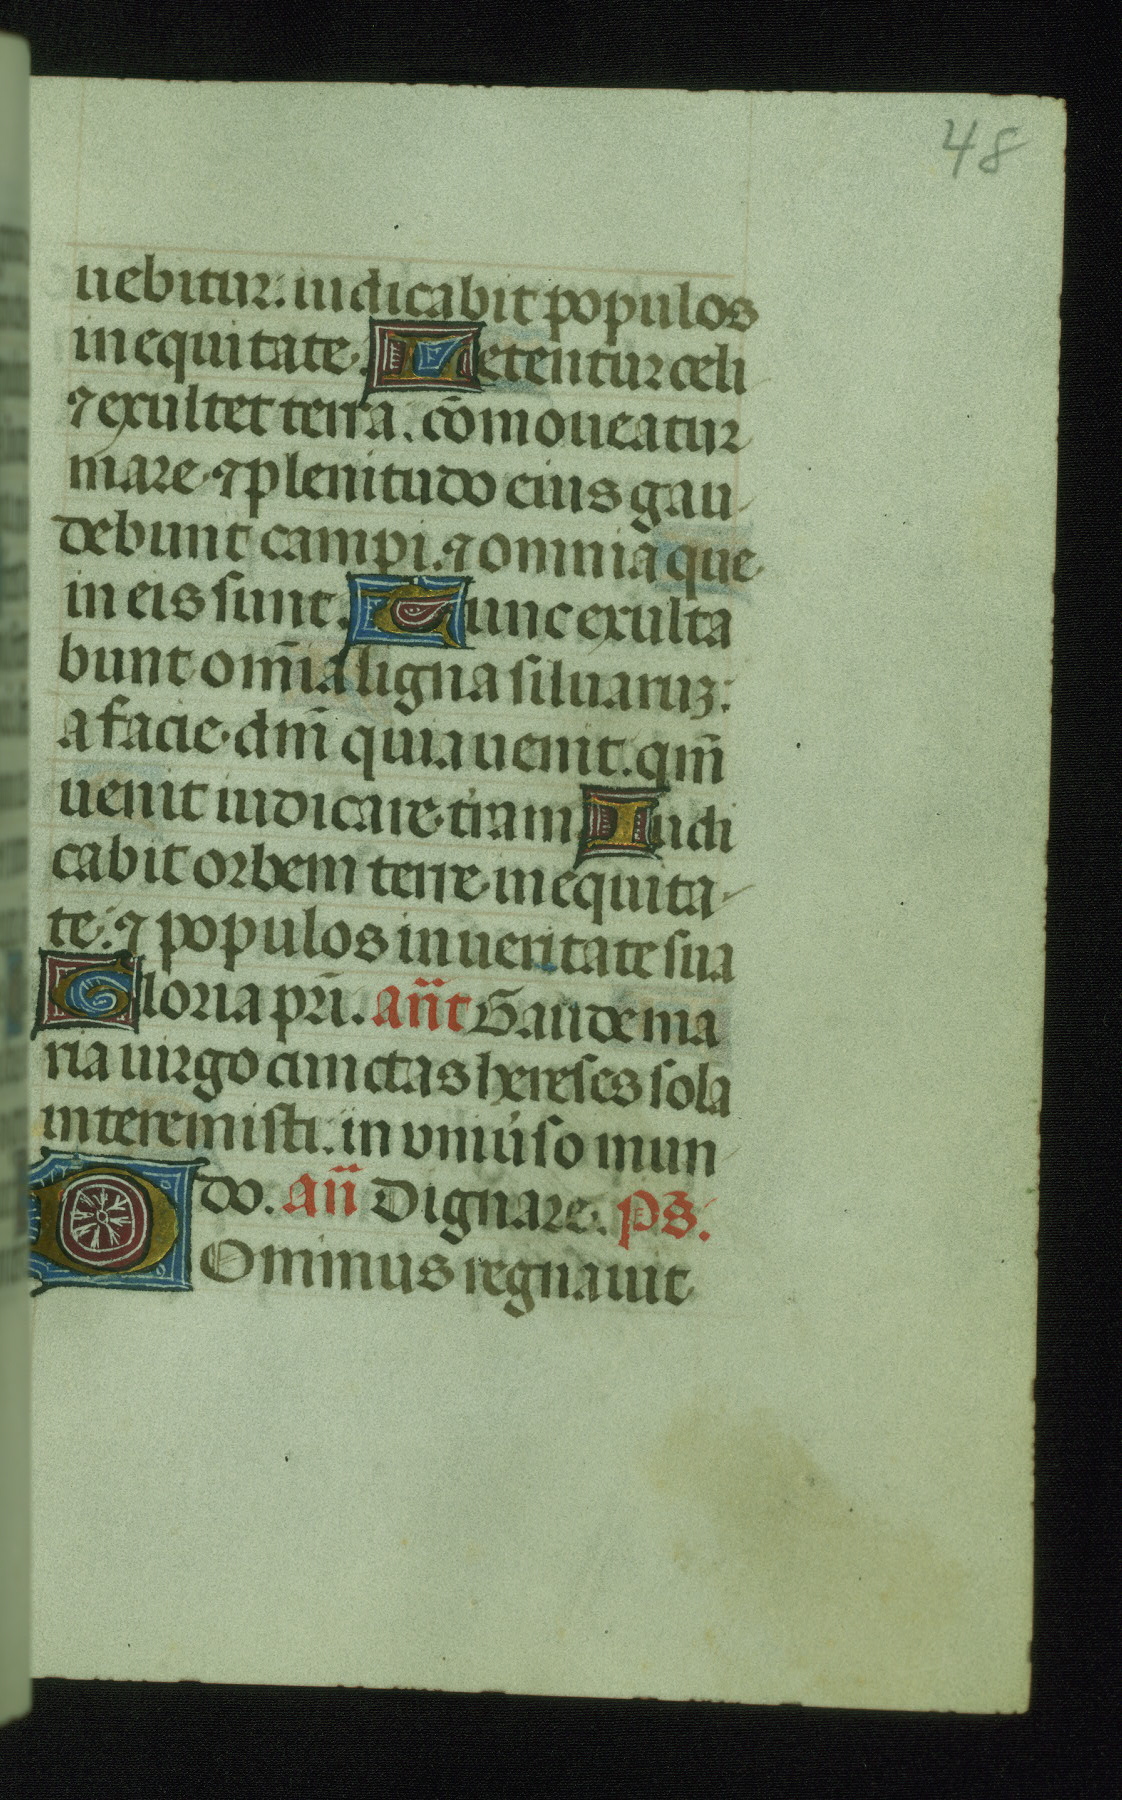 48
uebitur. iudicabit populos
in equitate. Letentur celi
⁊ exultet terra. cōmoueatur
mare ⁊ plenitudo eius gau
debunt campi. ⁊ omnia que
in eis sunt. Tunc exulta
bunt om̄ia ligna siluaruꝫ:
a facie dm̄ quia uenit. qm̄
uenit iudicare t'ram Iudi
cabit orbem terre in equita
te: ⁊ populos in ueritate sua
Gloria pri̅. an̅t Gaude ma
ria uirgo cunctas hereses sola
interemisti. in vniu'so mun
do. an̅ Dignare. ps.
DOminus regnauit